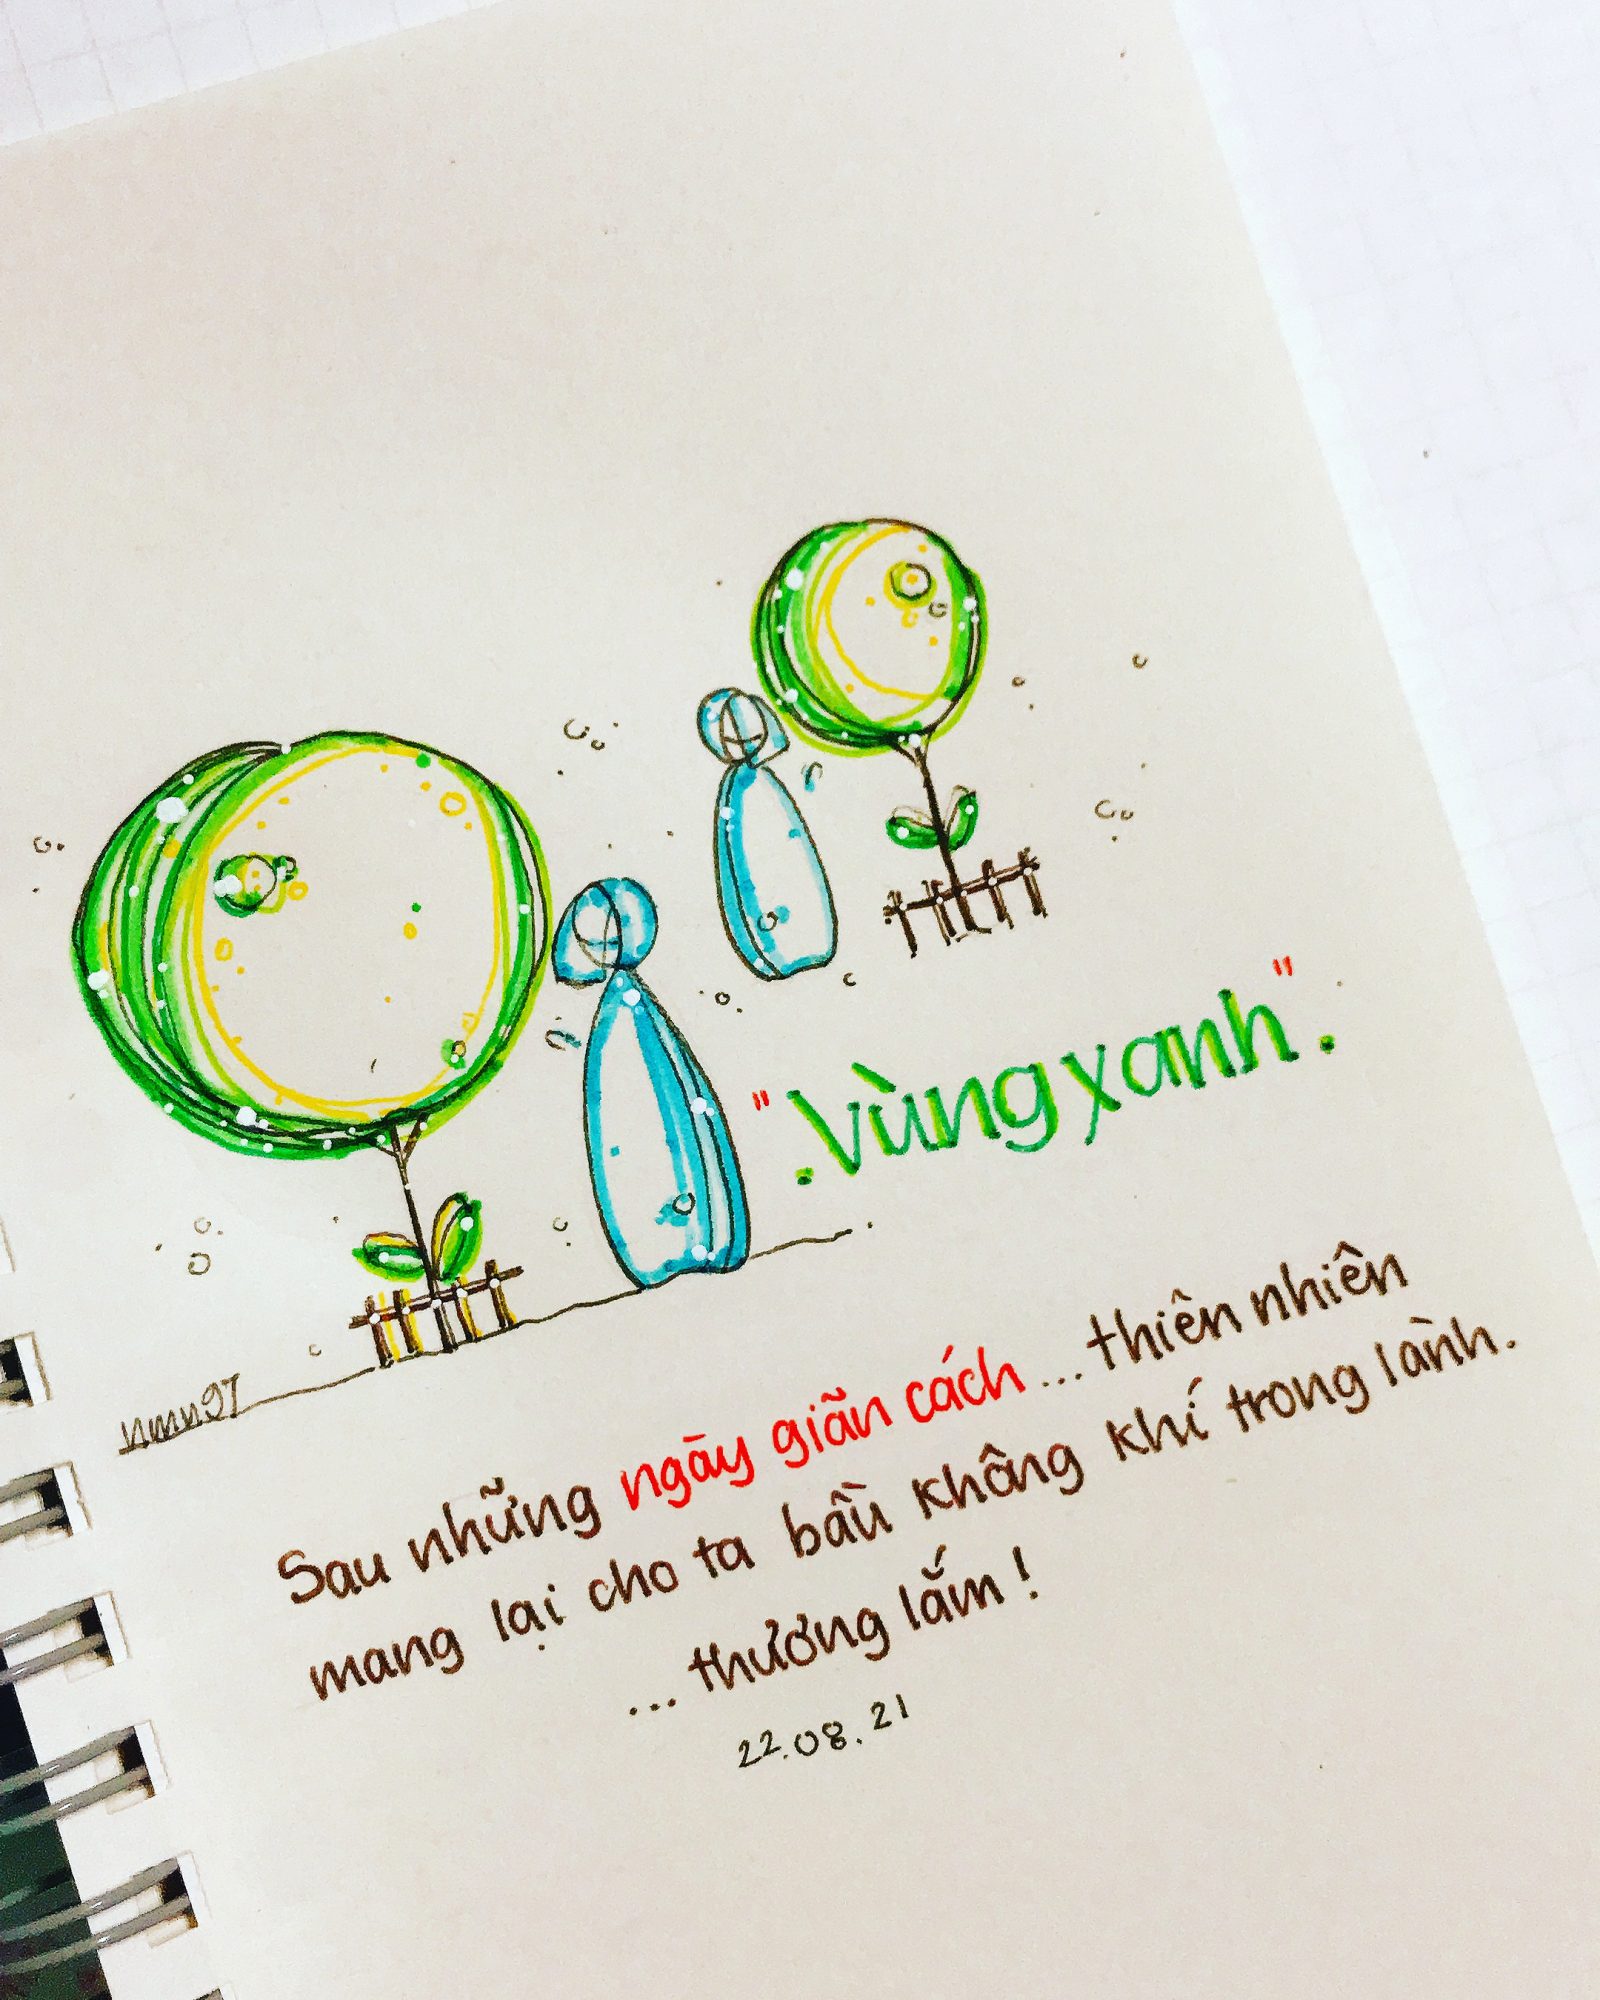 ". Vùng xanh ."
nmn97
Sau những ngày giãn cách ... thiên nhiên
mang lại cho ta bầu không khí trong lành.
... thương lắm !
22.08.21